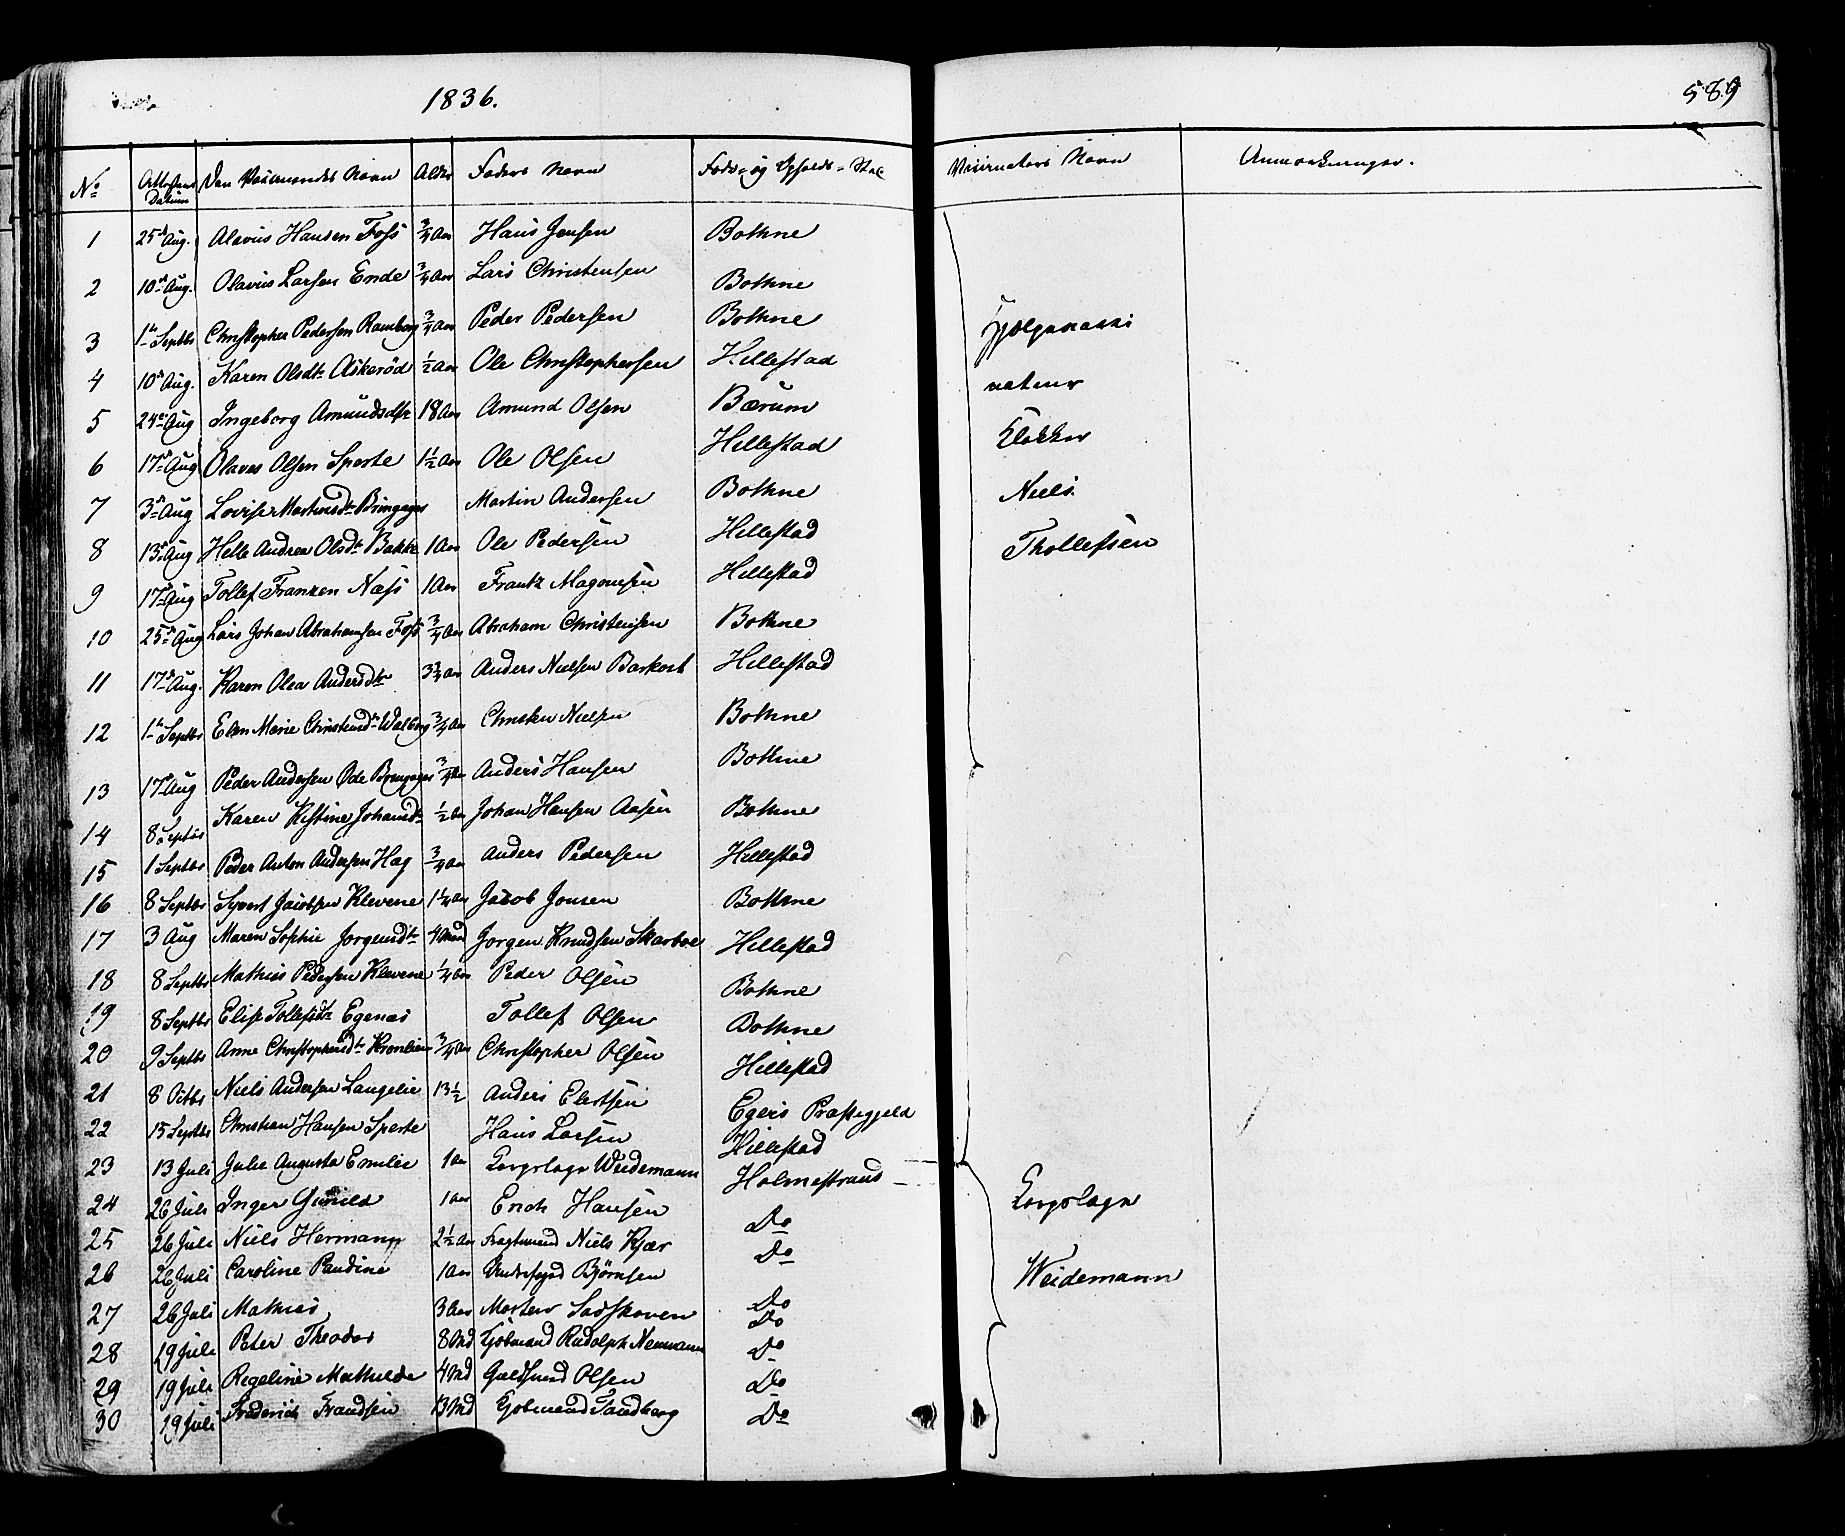 1836.
589
No Attestens Datum Den Vaccineredes Navn Alder Faders Navn Føde- og Opholds-Sted Vaccinateurs Navn Anmærkninger.
1 25de Aug. Olavus Hansen Foss 3/4 Aar Hans Jensen Bothne
2 10de Aug. Olavus Larsen Ende 3/4 Aar Lars Christensen Bothne
3 1te Septbr Christopher Pedersen Ramberg 3/4 Aar Peder Pedersen Bothne
4 10de Aug. Karen Olsdtr Askerød 1/2 Aar Ole Christophersen Hillestad
5 24de Aug Ingeborg Amundsdtr 18 Aar Amund Olsen Bærum
6 17de Aug Olaves Olsen Sperte 1 1/2 Aar Ole Olsen Hillestad
7 3de Aug Lovise Martinsdtr Bringager Martin Andersen Bothne
8 13de Aug Helle Andrea Olsdtr Bakke 1 Aar Ole Pedersen Hillestad
9 17de Aug Tollef Franzen Næss 1 Aar Frantz Magnusen Hillestad
10 25de Aug Lars Johan Abrahamsen Foss 3/4 Aar Abraham Christensen Bothne
11 17de Aug. Karen Olea Andersdtr 3 3/4 Aar Anders Nielsen Barkost Hillestad
12 1te Septbr Elen Marie Christensdtr Walberg 3/4 Aar Christen Nielsen Bothne
13 17de Aug Peder Andersen Øde Bringager 3/4 Aar Anders Hansen Bothne
14 8de Septbr Karen Kistine Johansdtr 1/2 Aar Johan Hansen Aasen Bothne
15 1 Septbr Peder Anton Andersen Hag 3/4 Aar Anders Pedersen Hillestad
16 8 Septbr Syvert Jacobsen Klevene 1 1/4 Aar Jacob Jonsen Bothne
17 3 Aug Maren Sophie Jorgensdtr 4 Mnd Jorgen Knudsen Skarboe Hillestad
18 8 Septbr Mathias Pedersen Klevene 1/4 Aar Peder Olsen Bothne
19 8 Septbr Elise Tollefsdtr Egenæs Tollef Olsen Bothne
20 9 Septbr Anne Christophersdtr Kronlien 3/4 Aar Christopher Olsen Hillestad
21 8 Octbr Niels Andersen Langelie 13 1/2 Anders Elertsen Egers Præstegjeld
22 15 Septbr Christian Hansen Sperte Hans Larsen Hillestad
Hjelpevacci
nateur
Klokker
Niels
Thollefsen
23 13 Juli Julie Augusta Emilie 1 Aar Corpslæge Weidemann Holmestrand
24 26 Juli Inger Gunild 1 Aar Erich Hansen Do
25 26 Juli Niels Hermann 2 1/2 Aar Fragtmand Niels Kjær Do
26 26 Juli Caroline Paudine 1 Aar Bjørnsen Do
27 26 Juli Mathias 3 Aar Morten Do
28 19 Juli Peter Theodor 8 Md Kjøbmand Rudolph Neumann Do
29 19 Juli Regeline Mathilde 4 Md Guldsmed Olsen Do
30 19 Juli Frederich Frandsen 13 Md Kjøbmand Sandberg Do
Corpslæge
Weidemann